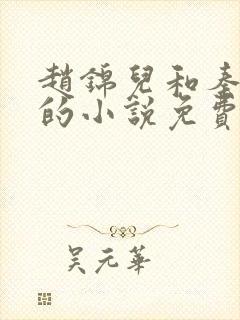 趙錦兒和秦
的小說免費
吴元華